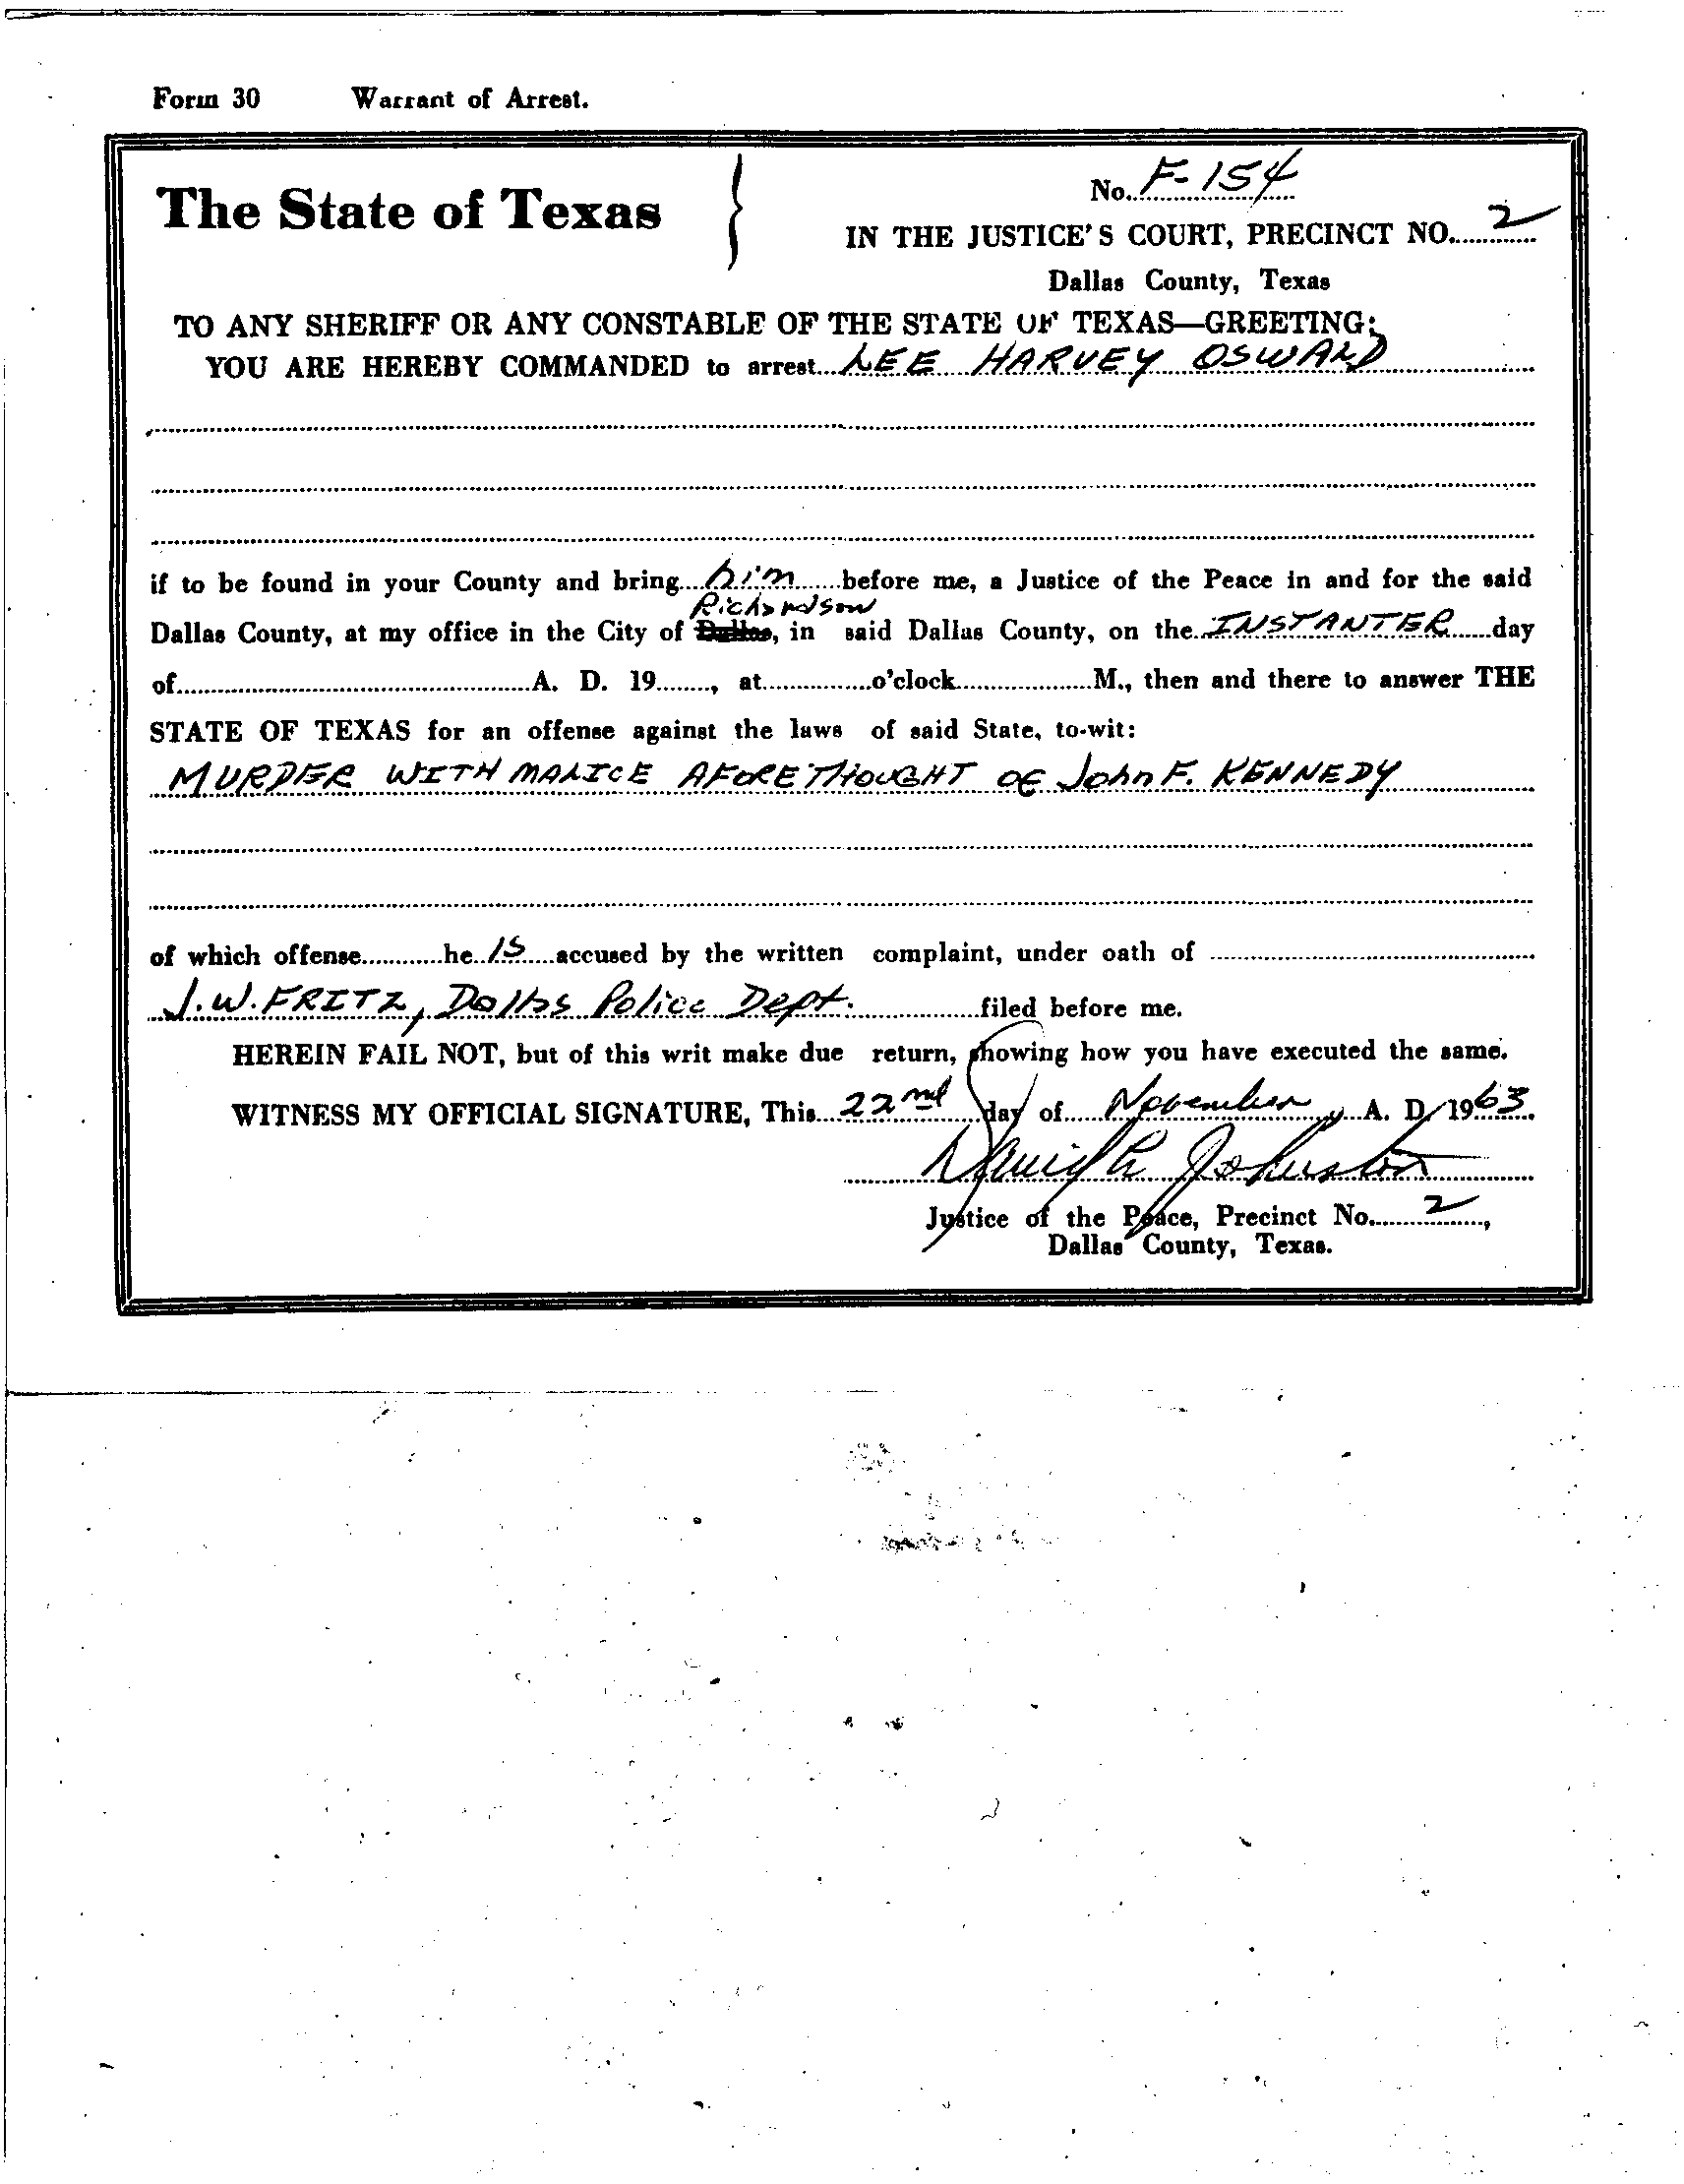 Form 30 Warrant of Arrest.
The State of Texas
No. F-154
IN THE JUSTICE'S COURT, PRECINCT NO. 2
Dallas County, Texas
TO ANY SHERIFF OR ANY CONSTABLE OF THE STATE OF TEXAS—GREETING:
YOU ARE HEREBY COMMANDED to arrest LEE HARVEY OSWALD
if to be found in your County and bring him before me, a Justice of the Peace in and for the said
Richardson
Dallas County, at my office in the City of Dallas, in said Dallas County, on the INSTANTER day
of A. D. 19, at o'clock M., then and there to answer THE
STATE OF TEXAS for an offense against the laws of said State, to-wit:
MURDER WITH MALICE AFORETHOUGHT OF John F. KENNEDY
of which offense he IS accused by the written complaint, under oath of
J. W. FRITZ, Dallas Police Dept. filed before me.
HEREIN FAIL NOT, but of this writ make due return, showing how you have executed the same.
WITNESS MY OFFICIAL SIGNATURE, This 22nd day of November, A. D. 1963.
David L. Johnston
Justice of the Peace, Precinct No. 2,
Dallas County, Texas.